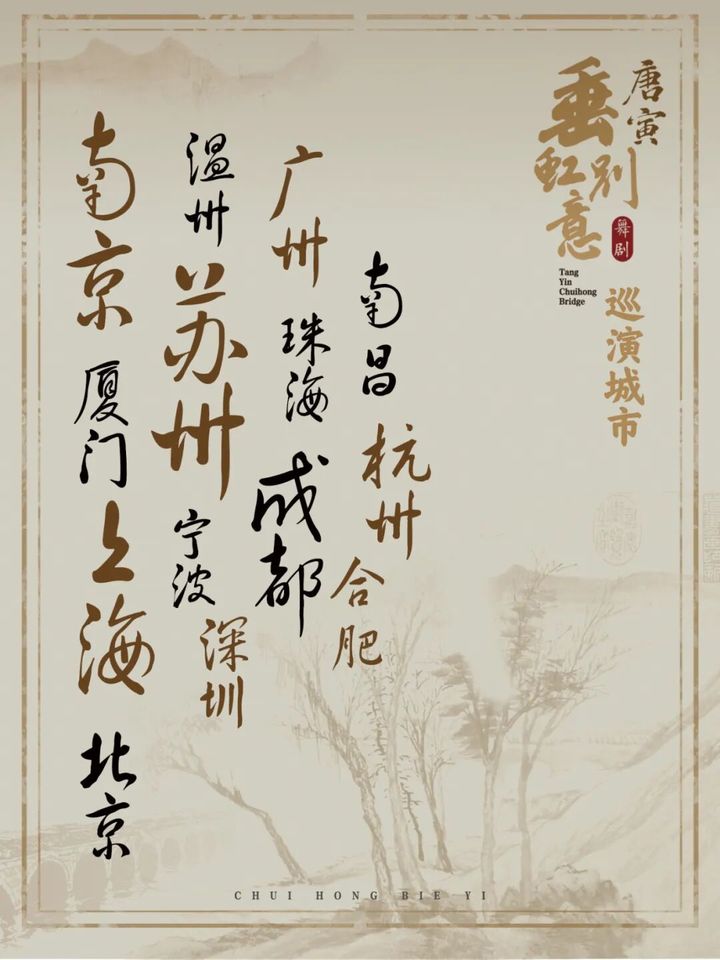 唐寅
垂虹别意
舞剧
Tang
Yin
Chuihong
Bridge
巡演城市
南昌
杭州
合肥
广州
珠海
成都
温州
苏州
宁波
深圳
南京
厦门
上海
北京
CHUI HONG BIE YI